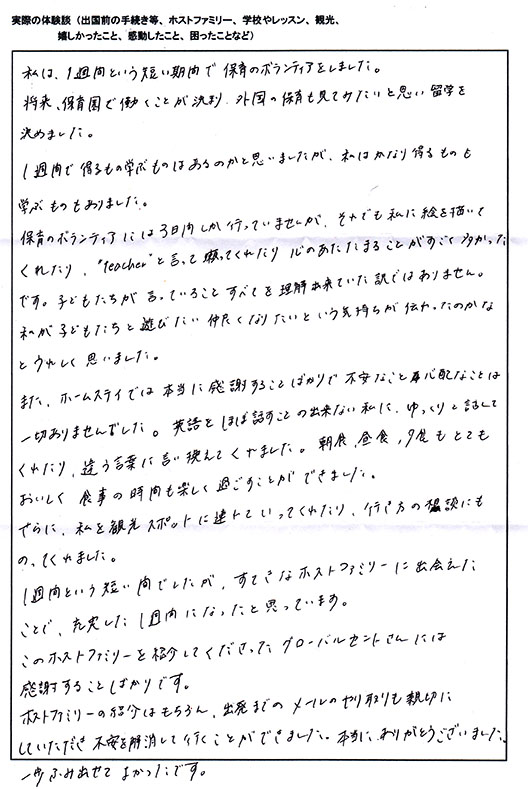 実際の体験談（出国前の手続き等、ホストファミリー、学校やレッスン、観光、
嬉しかったこと、感動したこと、困ったことなど）
私は、1週間という短い期間で保育のボランティアをしました。
将来、保育園で働くことが決まり、外国の保育も見てみたいと思い留学を
決めました。
1週間で得るもの学ぶものはあるのかと思いましたが、私はかなり得るものも
学ぶものもありました。
保育のボランティアには3日間しか行っていませんが、それでも私に絵を描いて
くれたり、"teacher"と言って慕ってくれたり心のあたたまることがすごく多かった
です。子どもたちが言っていることすべてを理解出来ていた訳ではありません。
私が子どもたちと遊びたい仲良くなりたいという気持ちが伝わったのかな
とうれしく思いました。
また、ホームステイでは本当に感謝することばかりで不安なこと心配なことは
一切ありませんでした。英語をほぼ話すことの出来ない私に、ゆっくりと話して
くれたり、違う言葉に言い換えてくれました。朝食、昼食、夕食もとても
おいしく食事の時間も楽しく過ごすことができました。
さらに、私を観光スポットに連れていってくれたり、行き方の相談にも
のってくれました。
1週間という短い間でしたが、すてきなホストファミリーに出会えた
ことで、充実した1週間になったと思っています。
このホストファミリーを紹介してくださったグローバルセントさんには
感謝することばかりです。
ホストファミリーの紹介はもちろん、出発までのメールのやり取りも親切に
していただき不安を解消して行くことができました。本当に、ありがとうございました。
一歩ふみ出せてよかったです。